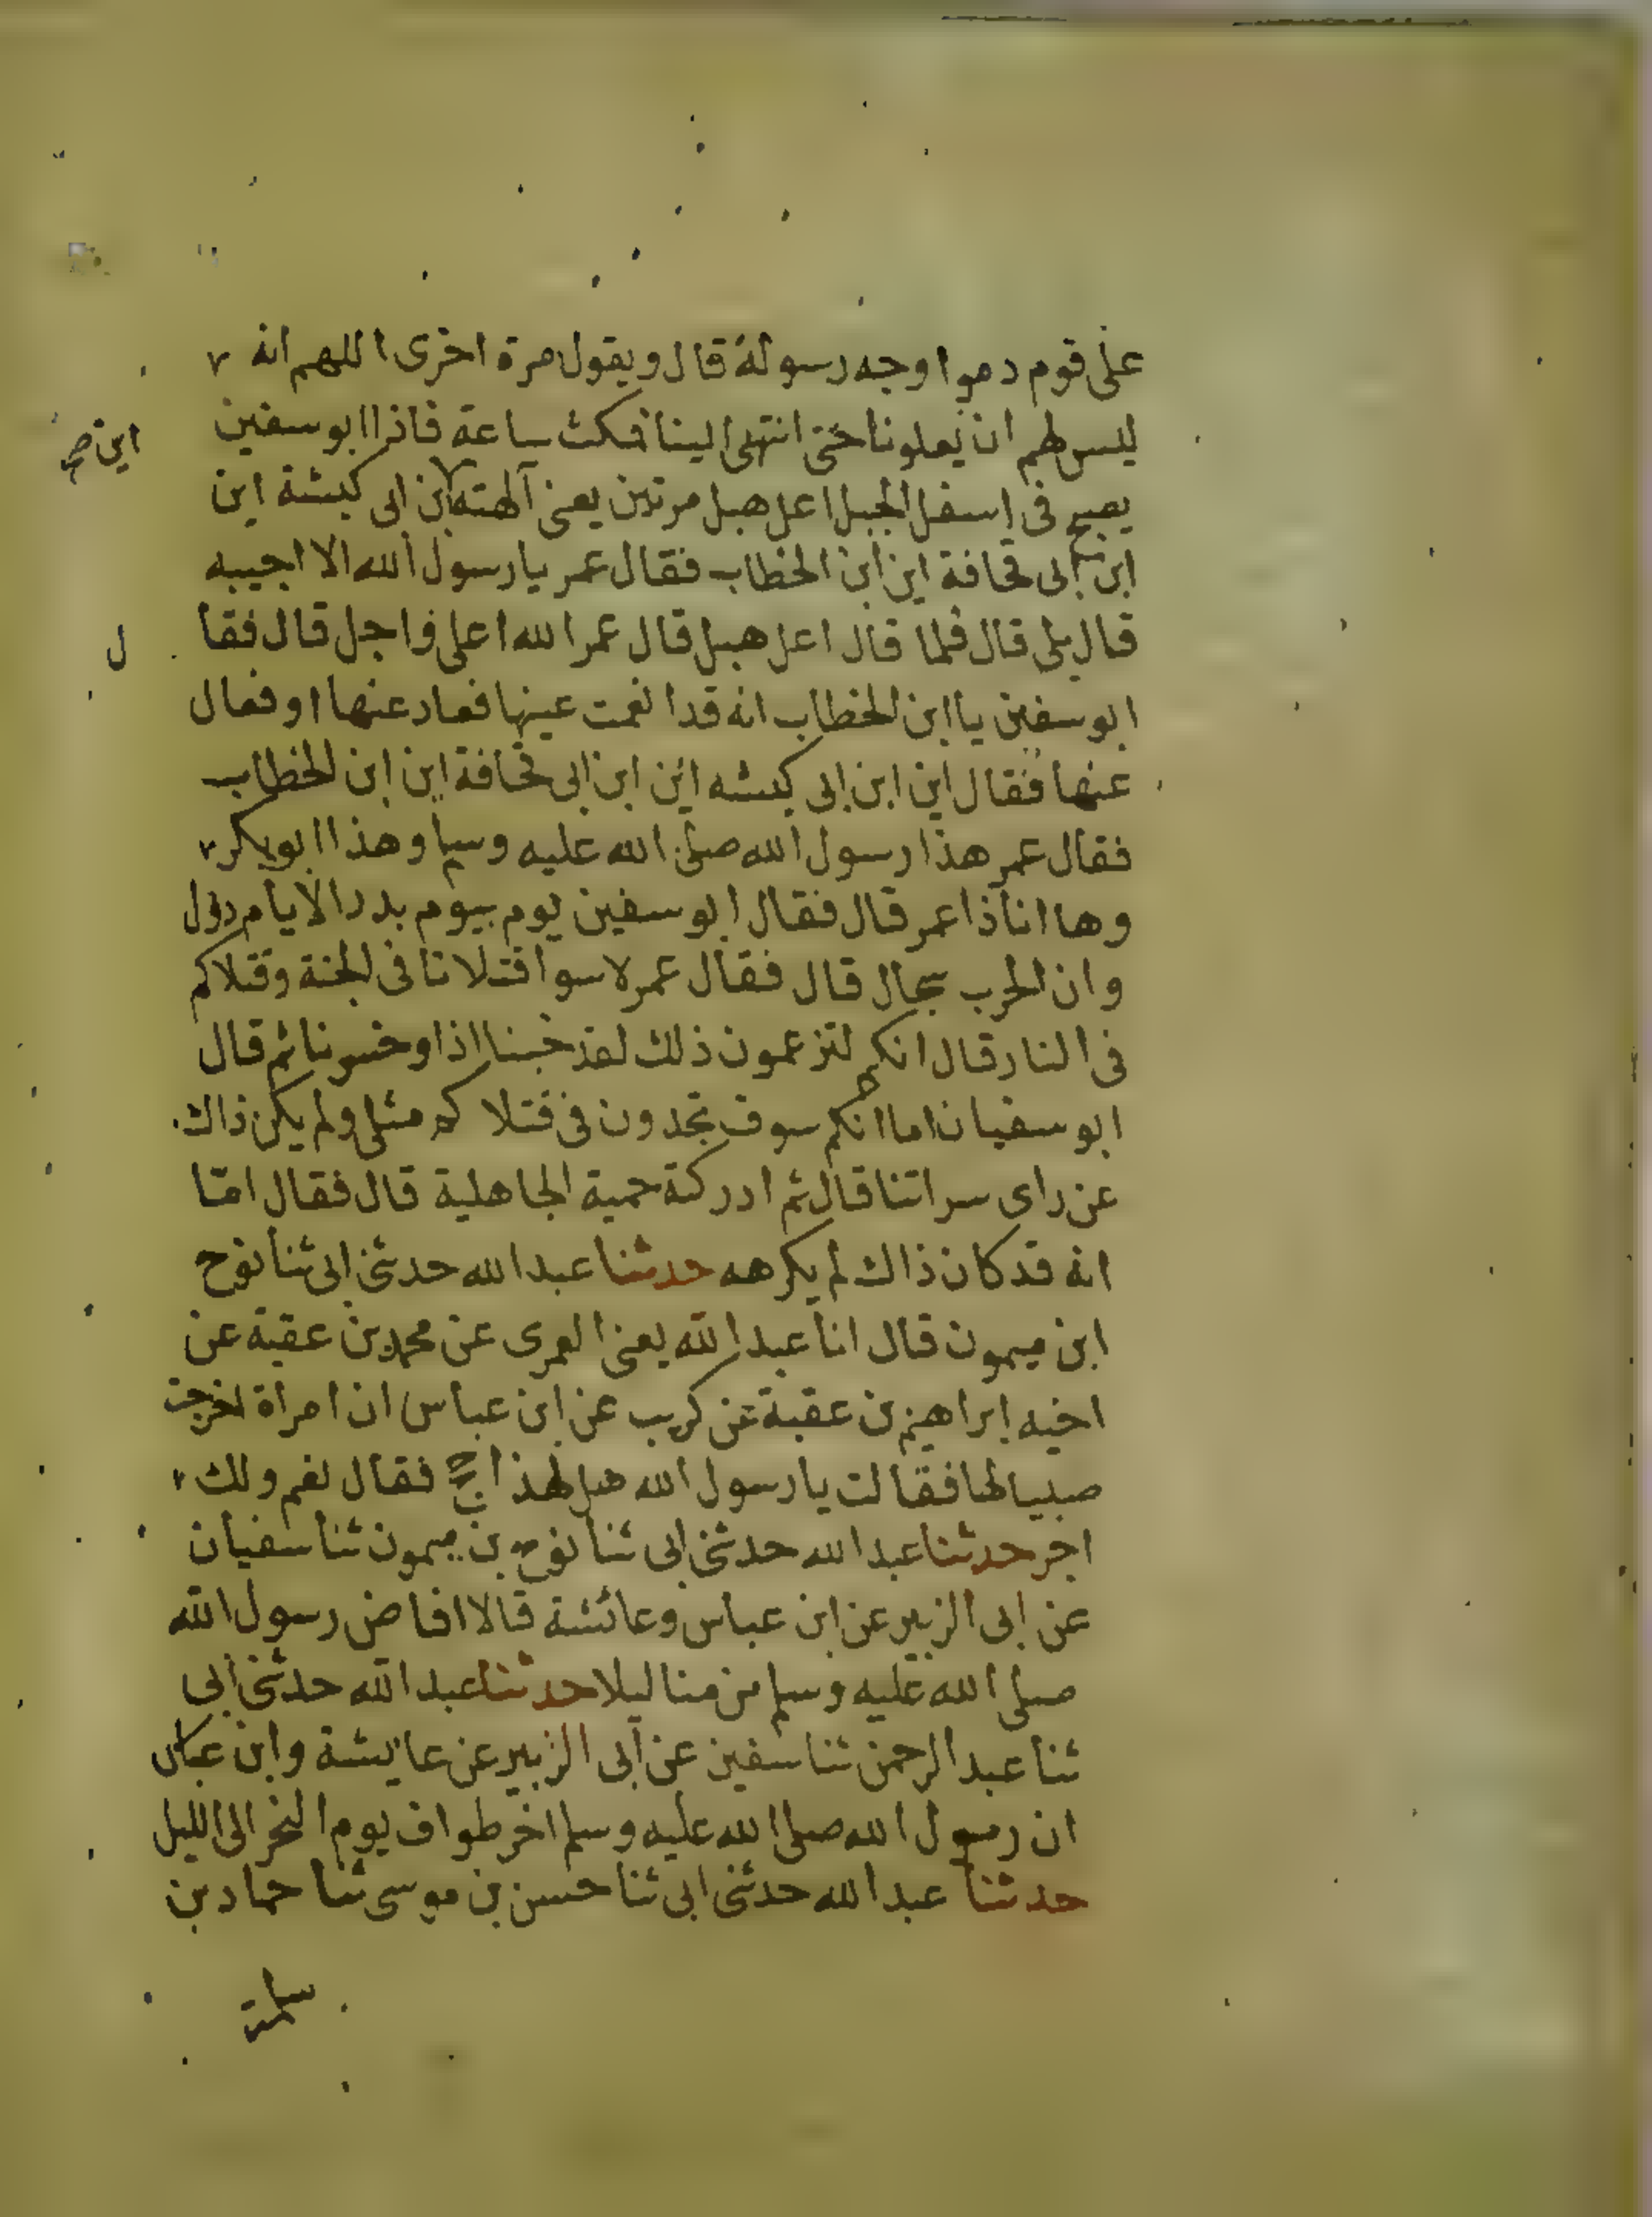 على قوم دموا وجه رسوله قال ويقول مرة اخرى اللهم انه
ليس لهم ان يعلونا حتى انتهى الينا فمكث ساعة فاذا ابو سفين
اين صح
يصيح فى اسفل الجبل اعل هبل مرتين يعنى آلهته ابن ابى كبشة اين
ابن ابى قحافة اين ابن الخطاب فقال عمر يا رسول الله الا اجيبه
قال بلى قال فلما قال اعل هبل قال عمر الله اعلى واجل قال فقا
ل
ابو سفين يا ابن الخطاب انه قد انعمت عينها فعاد عنها او فعال
عنها فقال اين ابن ابى كبشه اين ابن ابى قحافة اين ابن الخطاب
فقال عمر هذا رسول الله صلى الله عليه وسلم وهذا ابو بكر
وها انا ذا عمر قال فقال ابو سفين يوم بيوم بدر الايام دول
وان الحرب سجال قال فقال عمر لا سوا قتلانا فى الجنة وقتلاكم
فى النار قال انكم لتزعمون ذلك لقد خبنا اذا وخسرنا ثم قال
ابو سفيان اما انكم سوف تجدون فى قتلاكم مثلى ولم يكن ذاك
عن راى سراتنا قال ثم ادركته حمية الجاهلية قال فقال اما
انه قد كان ذاك لم يكرهه حدثنا عبد الله حدثنى ابى ثنا نوح
ابن ميمون قال انا عبد الله يعنى العمرى عن محمد بن عقبة عن
اخيه ابراهيم بن عقبة عن كريب عن ابن عباس ان امراة اخرجت
صبيا لها فقالت يا رسول الله هل لهذا حج فقال نعم ولك
اجر حدثنا عبد الله حدثنى ابى ثنا نوح بن ميمون ثنا سفيان
عن ابى الزبير عن ابن عباس وعائشة قالا افاض رسول الله
صلى الله عليه وسلم من منا ليلا حدثنا عبد الله حدثنى ابى
ثنا عبد الرحمن ثنا سفين عن ابى الزبير عن عايشة وابن عباس
ان رسول الله صلى الله عليه وسلم اخر طواف يوم النحر الى الليل
حدثنا عبد الله حدثنى ابى ثنا حسن بن موسى ثنا حماد بن
سلمة